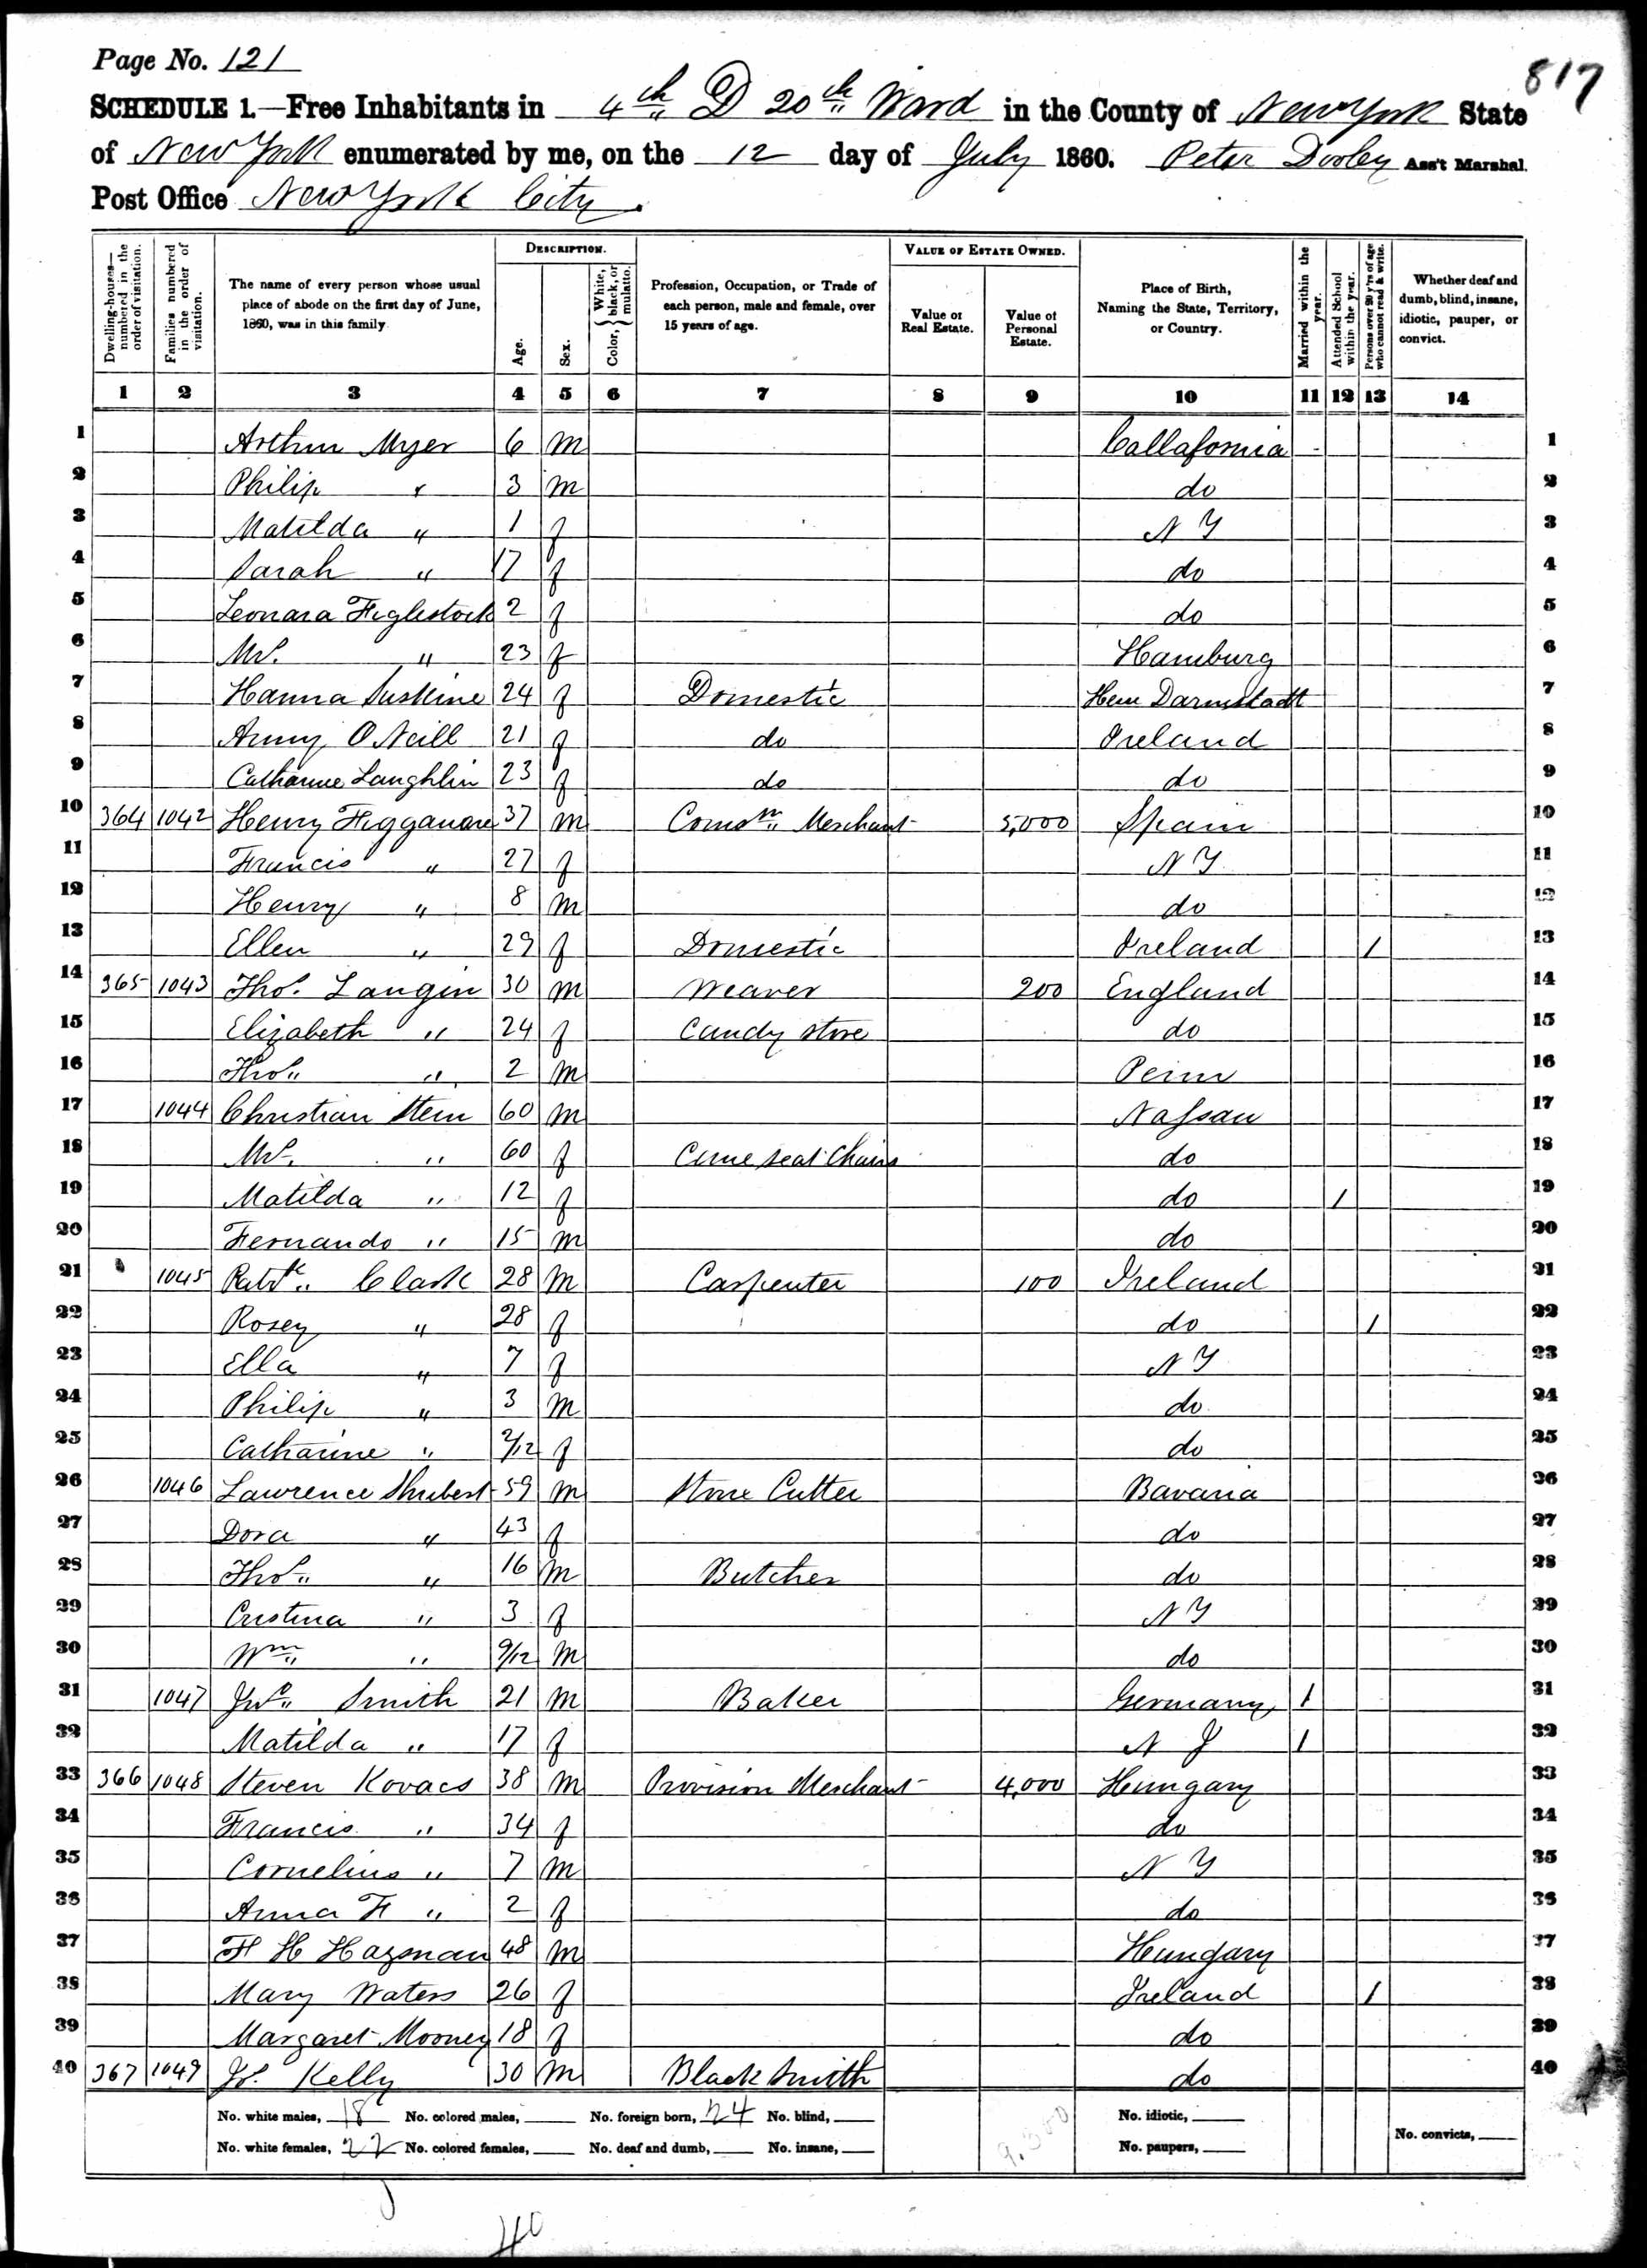 Page No. 121
817
SCHEDULE 1.—Free Inhabitants in 4th D 20th Ward in the County of New York State
of New York enumerated by me, on the 12 day of July 1860. Peter Dooley Ass't Marshal.
Post Office New York City.
Dwelling-houses—numbered in the order of visitation.
Families numbered in the order of visitation.
The name of every person whose usual place of abode on the first day of June, 1860, was in this family
DESCRIPTION.
Age.
Sex.
Color, { White, black, or mulatto.
Profession, Occupation, or Trade of each person, male and female, over 15 years of age.
VALUE OF ESTATE OWNED.
Value of Real Estate.
Value of Personal Estate.
Place of Birth, Naming the State, Territory, or Country.
Married within the year.
Attended School within the year.
Persons over 20 y'rs of age who cannot read & write.
Whether deaf and dumb, blind, insane, idiotic, pauper, or convict.
1 2 3 4 5 6 7 8 9 10 11 12 13 14
1 Arthur Myer 6 m Callafornia 1
2 Philip " 3 m do 2
3 Matilda " 1 f N Y 3
4 Sarah " 17 f do 4
5 Leonara Figlestock 2 f do 5
6 Mrs. " 23 f Hamburg 6
7 Hanna Suskine 24 f Domestic Hem Darmstadt 7
8 Anny O Neill 21 f do Ireland 8
9 Catharine Laughlin 23 f do do 9
10 364 1042 Henry Figganare 37 m Comsn Merchant 5,000 Spain 10
11 Francis " 27 f N Y 11
12 Henry " 8 m do 12
13 Ellen " 29 f Domestic Ireland 1 13
14 365 1043 Thos. Langin 30 m Weaver 200 England 14
15 Elizabeth " 24 f Candy store do 15
16 Thos " 2 m Penn 16
17 1044 Christian Stein 60 m Nassau 17
18 Mrs. " 60 f Cane seat Chairs do 18
19 Matilda " 12 f do 1 19
20 Fernando " 15 m do 20
21 1045 Patrk Clark 28 m Carpenter 100 Ireland 21
22 Rosey " 28 f do 1 22
23 Ella " 7 f N Y 23
24 Philip " 3 m do 24
25 Catharine " 2/12 f do 25
26 1046 Lawrence Shubert 59 m Stone Cutter Bavaria 26
27 Dora " 43 f do 27
28 Thos " 16 m Butcher do 28
29 Cristina " 3 f N Y 29
30 Wm " 9/12 m do 30
31 1047 Jno Smith 21 m Baker Germany 1 31
32 Matilda " 17 f N J 1 32
33 366 1048 Steven Kovacs 38 m Provision Merchant 4,000 Hungary 33
34 Francis " 34 f do 34
35 Cornelius " 7 m N Y 35
36 Anna F " 2 f do 36
37 F H Hazman 48 m Hungary 37
38 Mary Waters 26 f Ireland 1 38
39 Margaret Mooney 18 f do 39
40 367 1049 Js. Kelly 30 m Black smith do 40
No. white males, 18 No. colored males, No. foreign born, 24 No. blind, No. idiotic,
No. white females, 22 No. colored females, No. deaf and dumb, No. insane, 9,300 No. paupers, No. convicts,
40